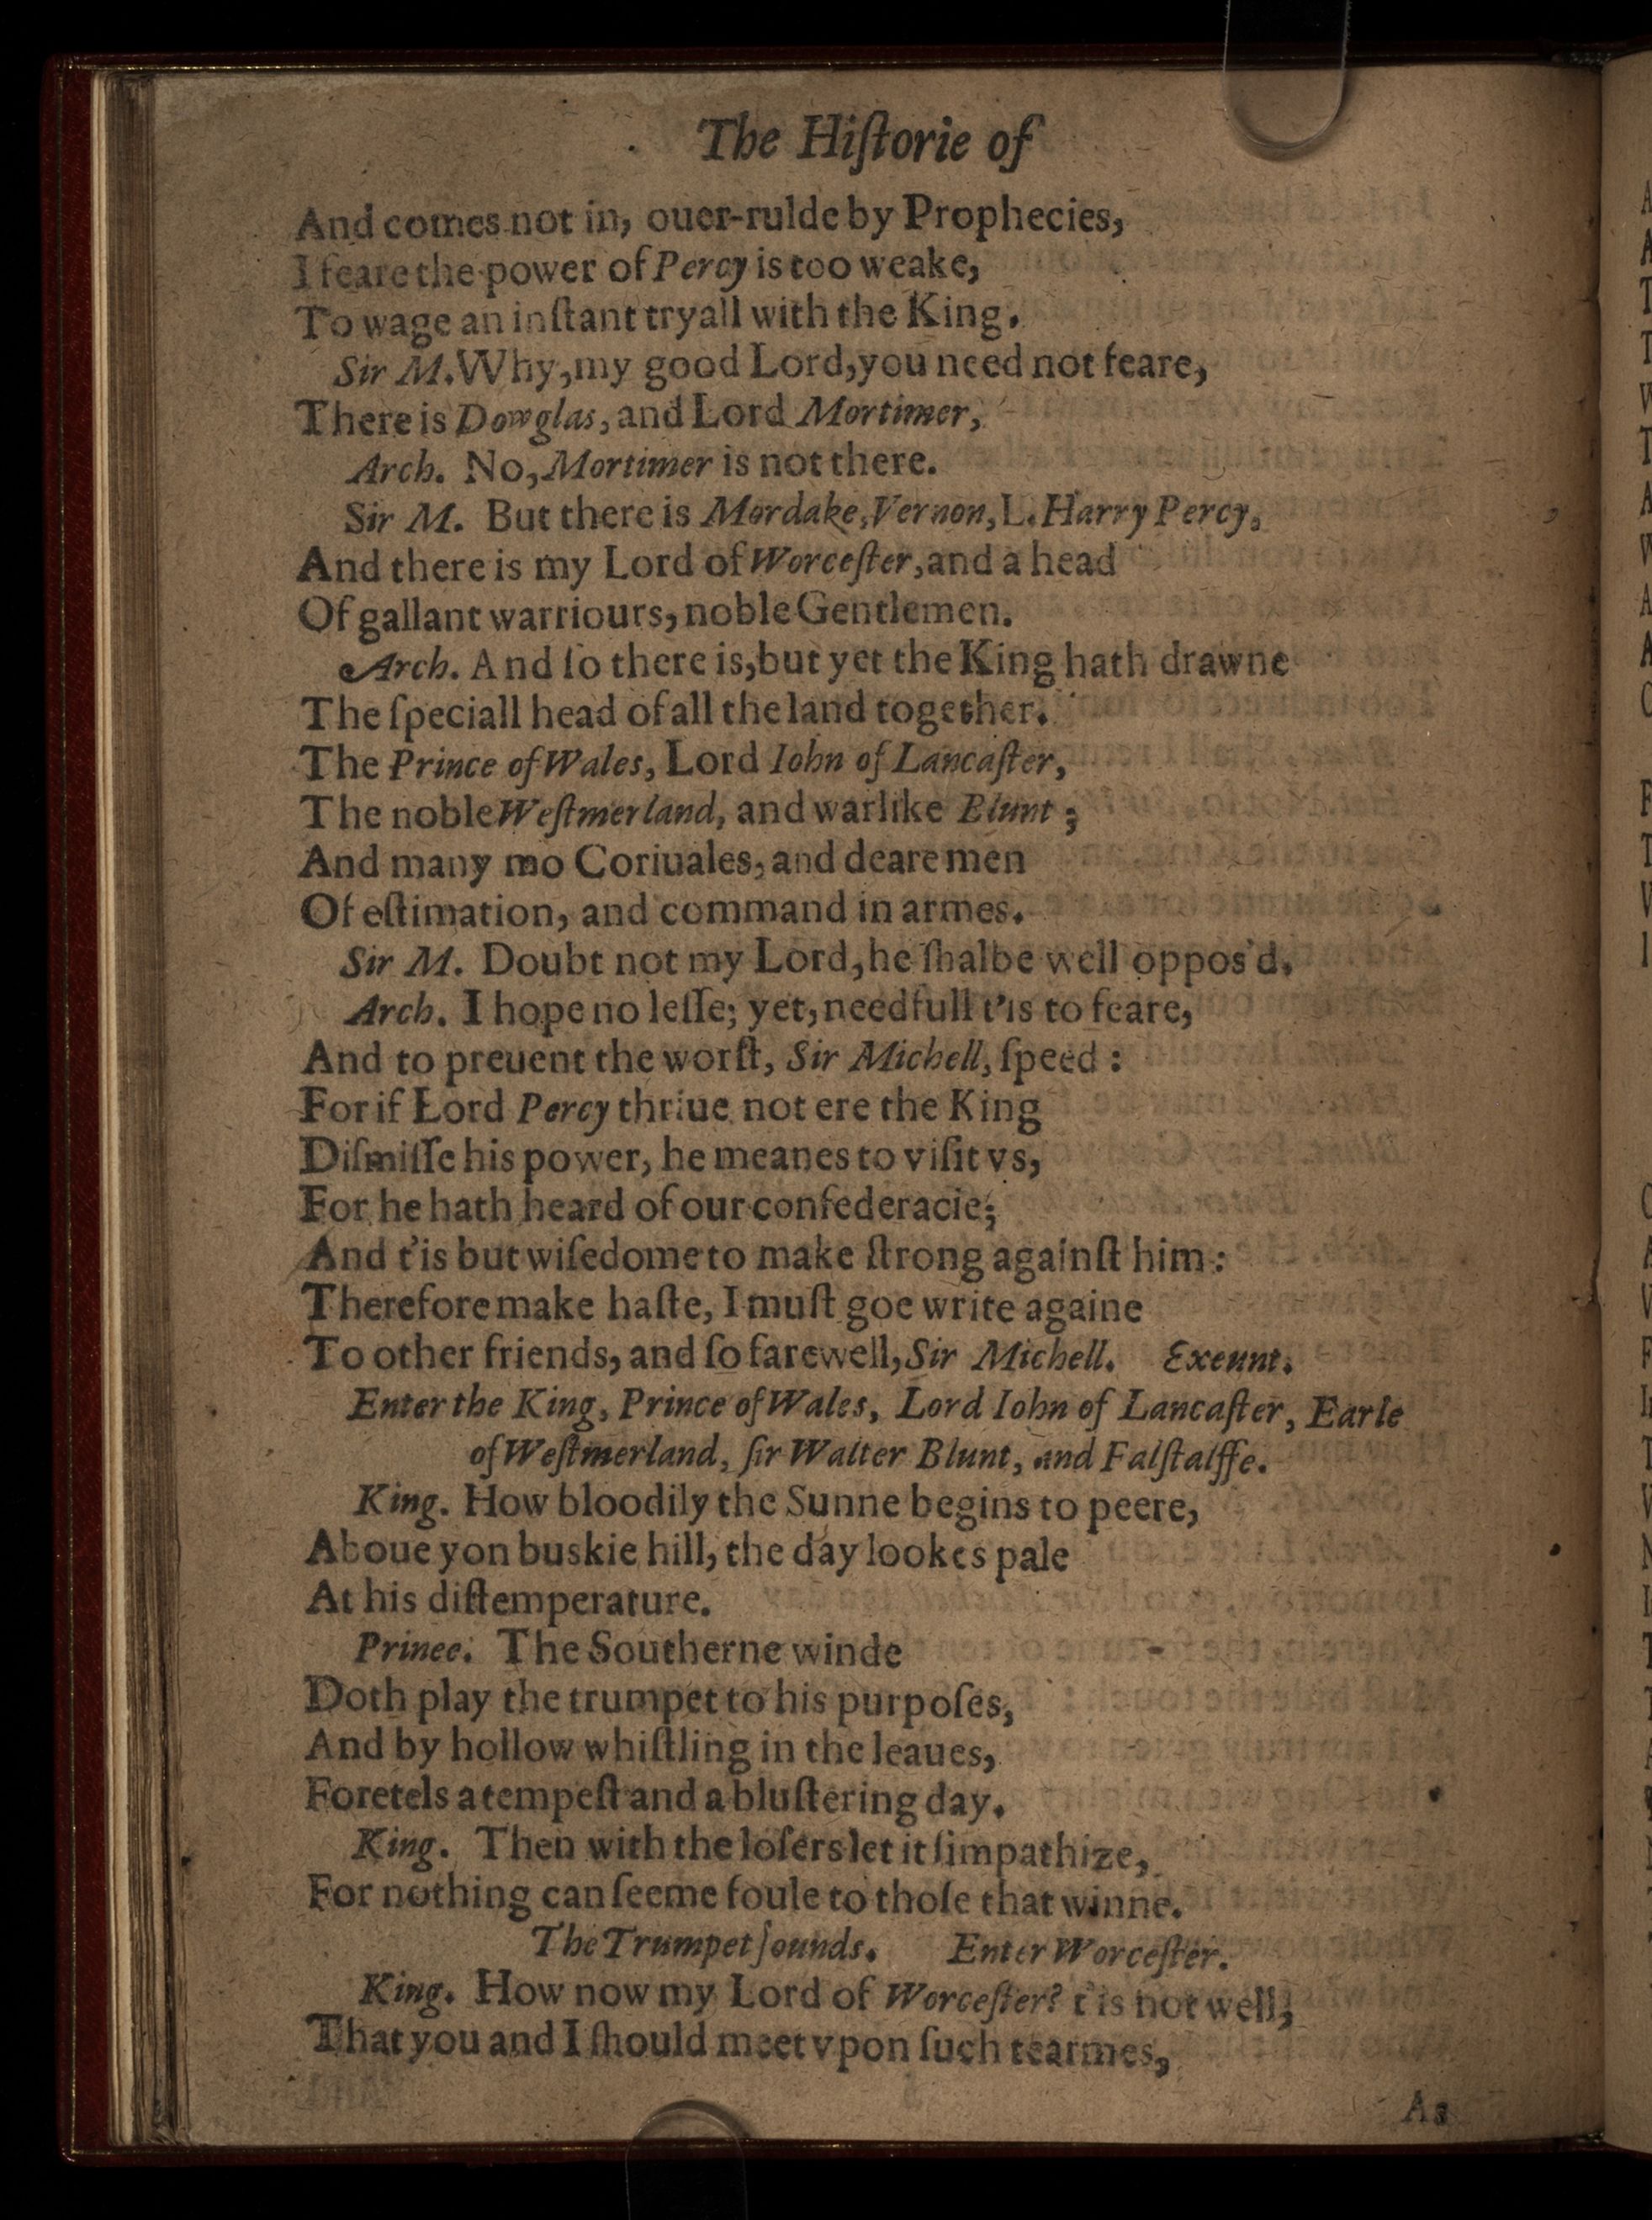 The Hiſtorie of
And comes not in, ouer-rulde by Prophecies,
I feare the power of Percy is too weake,
To wage an inſtant tryall with the King.
Sir M. Why, my good Lord, you need not feare,
There is Dowglas, and Lord Mortimer,
Arch. No, Mortimer is not there.
Sir M. But there is Mordake, Vernon, L. Harry Percy,
And there is my Lord of Worceſter, and a head
Of gallant warriours, noble Gentlemen.
Arch. And ſo there is, but yet the King hath drawne
The ſpeciall head of all the land together.
The Prince of Wales, Lord Iohn of Lancaſter,
The noble Weſtmerland, and warlike Blunt;
And many mo Coriuales, and deare men
Of eſtimation, and command in armes.
Sir M. Doubt not my Lord, he ſhalbe well oppos'd.
Arch. I hope no leſſe; yet, needfull t'is to feare,
And to preuent the worſt, Sir Michell, ſpeed:
For if Lord Percy thriue not ere the King
Diſmiſſe his power, he meanes to viſit vs,
For he hath heard of our confederacie;
And t'is but wiſedome to make ſtrong againſt him:
Therefore make haſte, I muſt goe write againe
To other friends, and ſo farewell, Sir Michell. Exeunt.
Enter the King, Prince of Wales, Lord Iohn of Lancaſter, Earle
of Weſtmerland, ſir Walter Blunt, and Falſtalffe.
King. How bloodily the Sunne begins to peere,
Aboue yon buskie hill, the day lookes pale
At his diſtemperature.
Prince. The Southerne winde
Doth play the trumpet to his purpoſes,
And by hollow whiſtling in the leaues,
Foretels a tempeſt and a bluſtering day.
King. Then with the loſers let it ſimpathize,
For nothing can ſeeme foule to thoſe that winne.
The Trumpet ſounds. Enter Worceſter.
King. How now my Lord of Worceſter? t'is not well,
That you and I ſhould meet vpon ſuch tearmes,
As